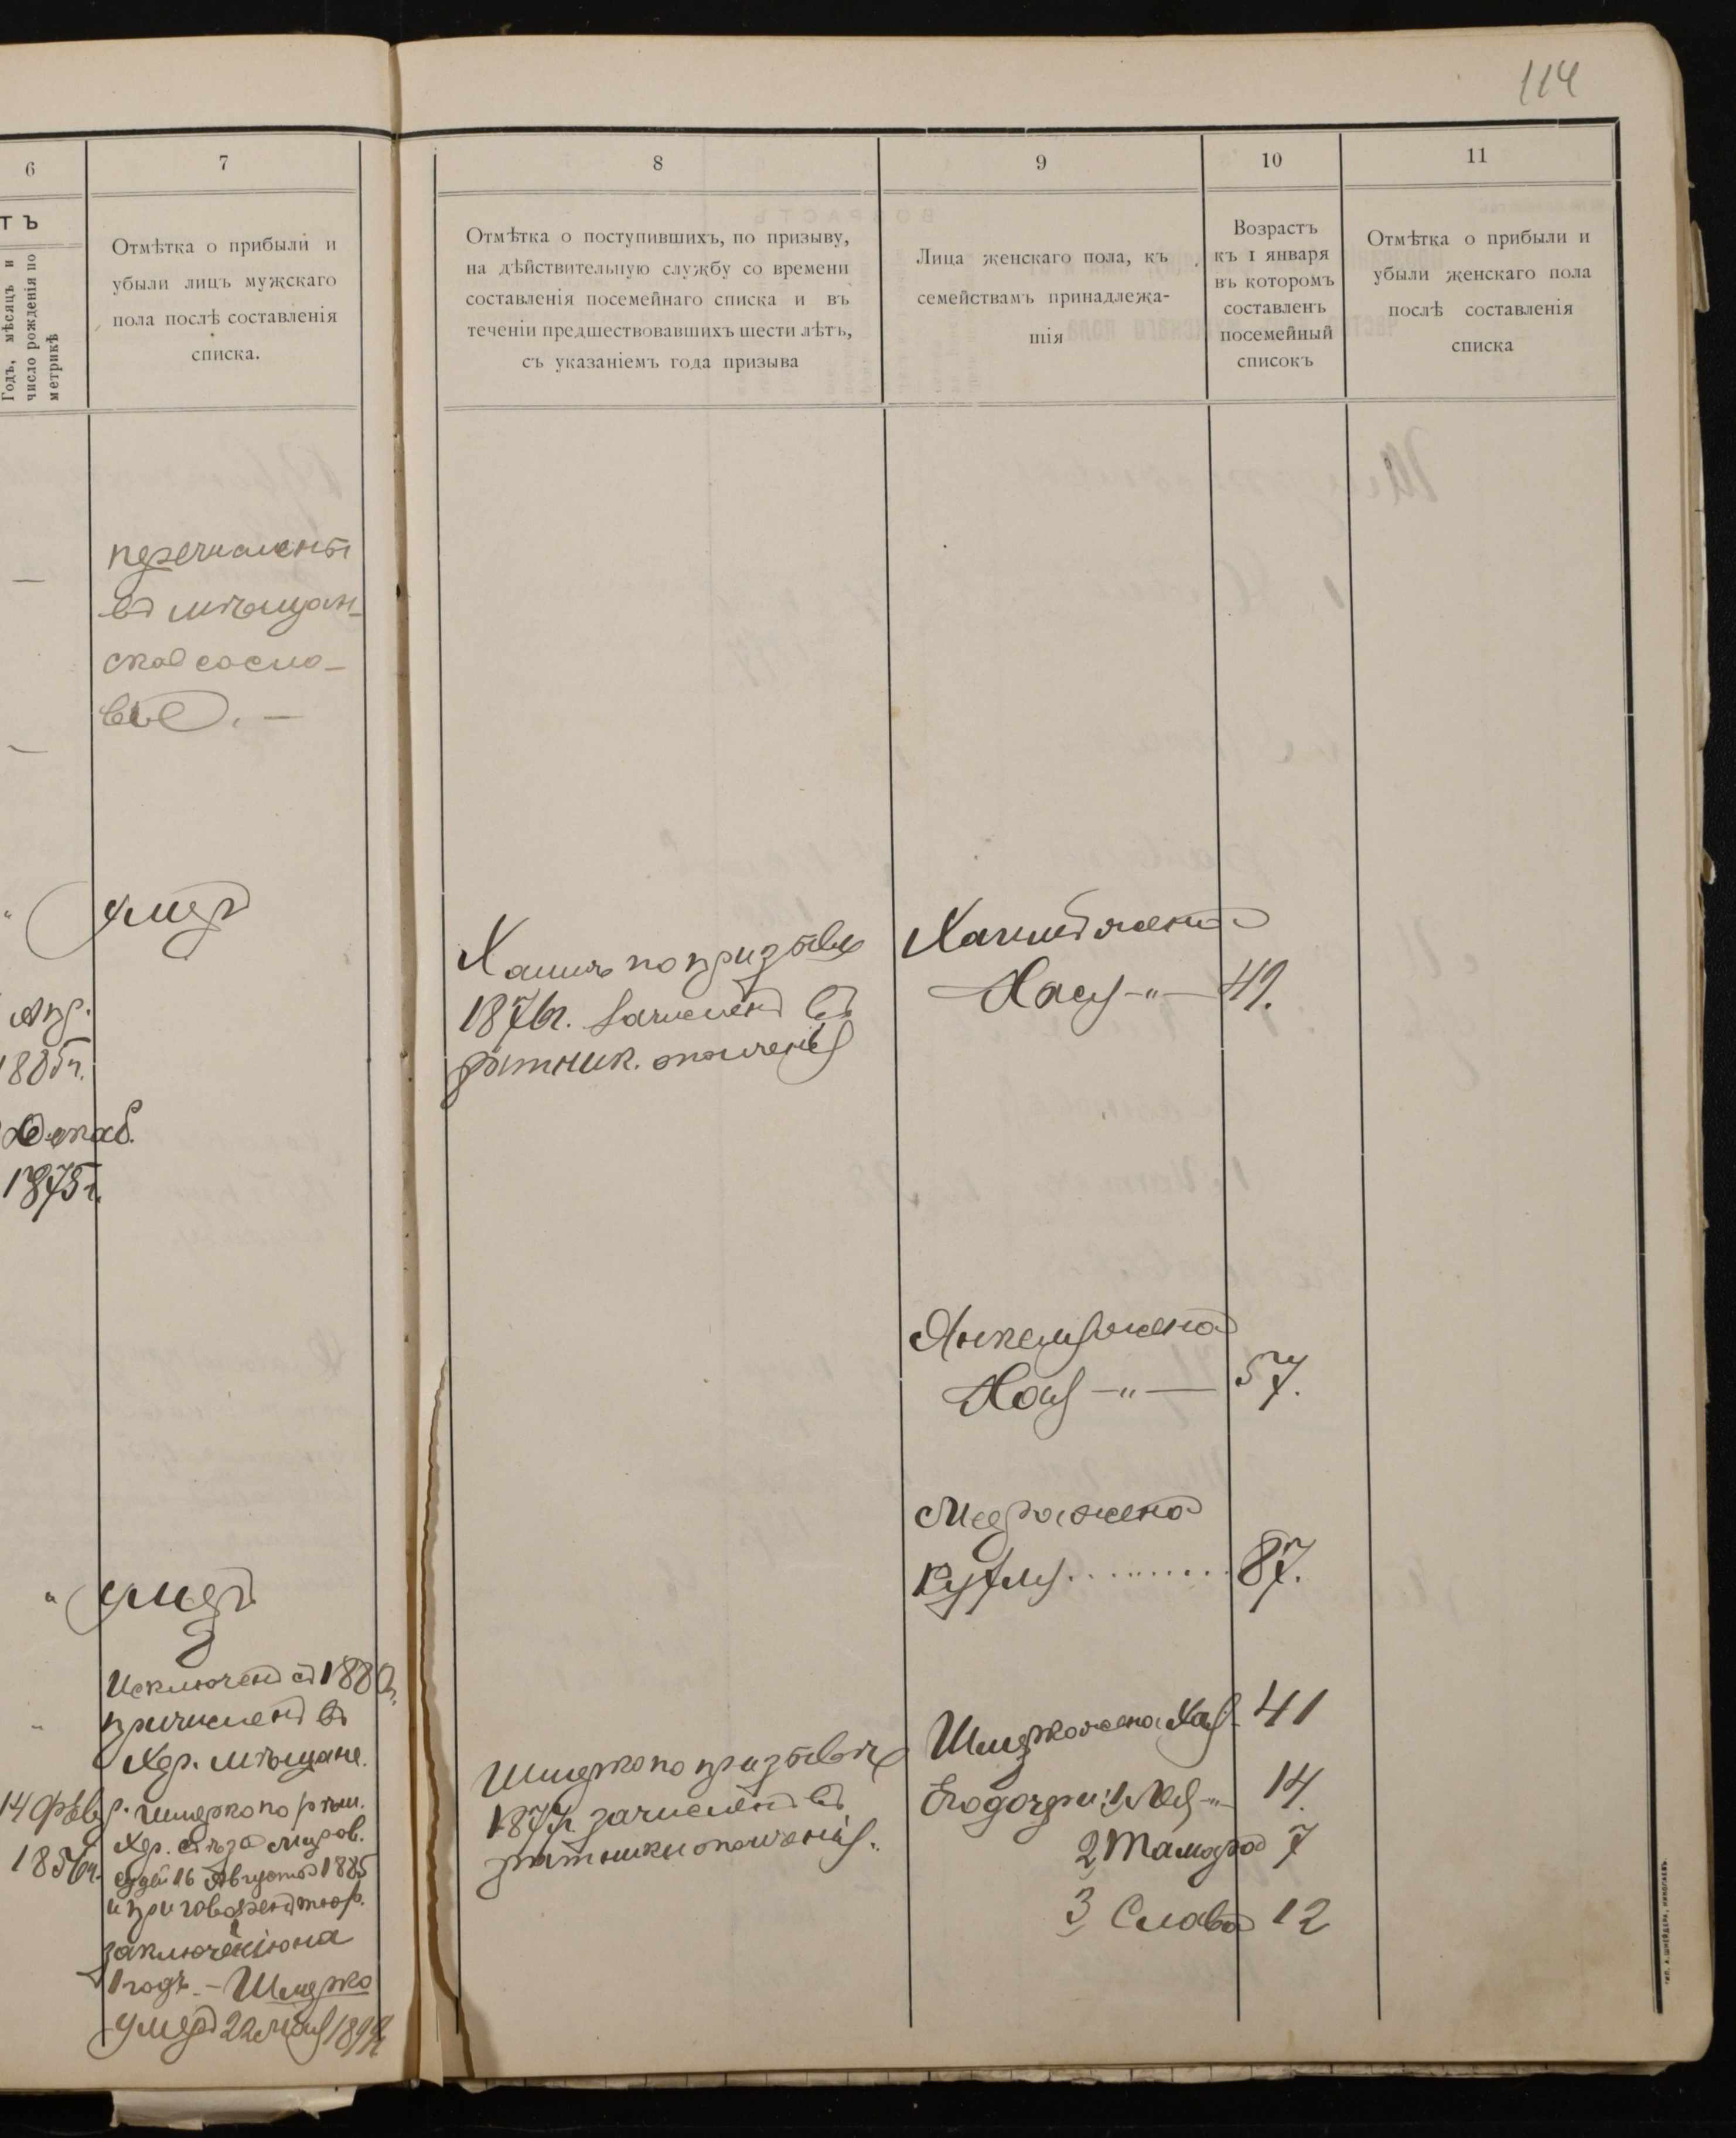 114
6
7
8
9
10
11
ТЪ
Годъ, мѣсяцъ и
число рожденія по
метрикѣ
Отмѣтка о прибыли и
убыли лицъ мужскаго
пола послѣ составленія
списка.
Отмѣтка о поступившихъ, по призыву,
на дѣйствительную службу со времени
составленія посемейнаго списка и въ
теченіи предшествовавшихъ шести лѣтъ,
съ указаніемъ года призыва
Лица женскаго пола, къ
семействамъ принадлежа-
щія
Возрастъ
къ 1 января
въ которомъ
составленъ
посемейный
списокъ
Отмѣтка о прибыли и
убыли женскаго пола
послѣ составленія
списка
перечислены
въ мѣщан-
ское сосло-
віе. —
умеръ
Апр.
1885 г.
Декаб.
1875 г.
по призыву
1876 г. зачисленъ въ
ратник. ополченія
жена
Хая —"— 49.
Янкеля жена
Хая —"— 57.
жена
87.
умеръ
Исключенъ съ 1880 г.
причисленъ въ
Хер. мѣщане.
14 Февр.
1856 г.
Шмерко по рѣш.
Хер. съѣзда Миров.
судей 16 Августа 1885
и приговоренъ тюр.
заключенію на
1 годъ. — Шмерко
умеръ 22 Мая
Шмерко по призыву
1877 г. зачисленъ въ
ратники ополченія.
Шмерко жена Хая 41
Его дочери: 1, Лея —"— 14.
2, Тамара 7
3, Слава 12
ТИП. А. ШНЕЙДЕРА, НИКОЛАЕВЪ.